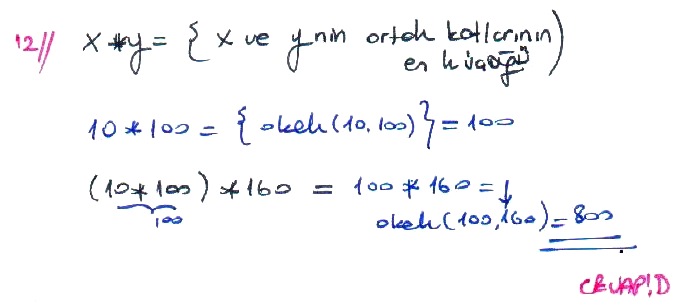 12// x * y = { x ve y nin ortak katlarının
en küçüğü )
10 * 100 = { okek (10, 100) } = 100
(10 * 100) * 160 = 100 * 160 = ↓
100
okek (100, 160) = 800
CEVAP: D